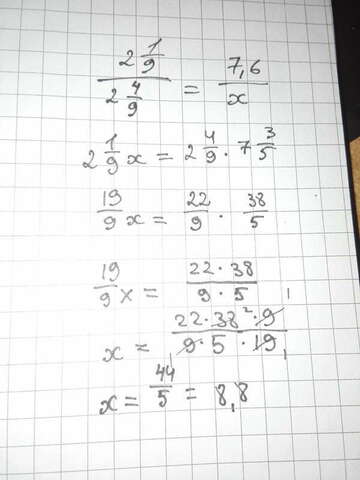 2 1/9 / 2 4/9 = 7,6 / x
2 1/9 x = 2 4/9 · 7 3/5
19/9 x = 22/9 · 38/5
19/9 x = 22·38 / 9·5
x = 22·38²·9 / 9·5·19₁
x = 44/5 = 8,8